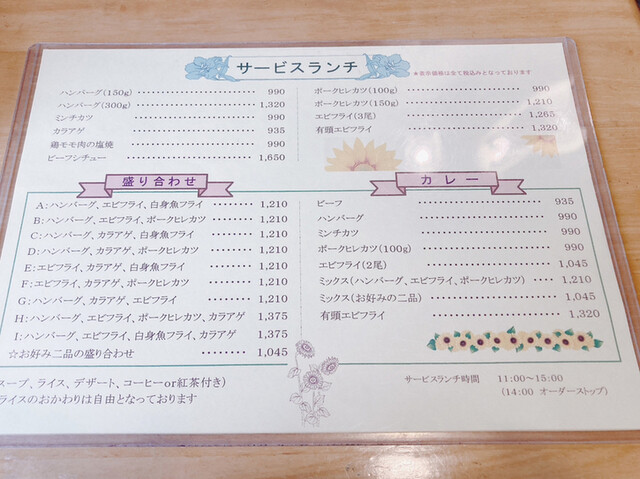 サービスランチ
★表示価格は全て税込みとなっております
ハンバーグ(150g) ・・・・・・・・・・・・・・・・ 990
ハンバーグ(300g) ・・・・・・・・・・・・・・・・ 1,320
ミンチカツ ・・・・・・・・・・・・・・・・ 990
カラアゲ ・・・・・・・・・・・・・・・・ 935
鶏モモ肉の塩焼 ・・・・・・・・・・・・・・・・ 990
ビーフシチュー ・・・・・・・・・・・・・・・・ 1,650
ポークヒレカツ(100g) ・・・・・・・・・・・・・・・・ 990
ポークヒレカツ(150g) ・・・・・・・・・・・・・・・・ 1,210
エビフライ(3尾) ・・・・・・・・・・・・・・・・ 1,265
有頭エビフライ ・・・・・・・・・・・・・・・・ 1,320
盛り合わせ
A:ハンバーグ、エビフライ、白身魚フライ ・・・・・・・・ 1,210
B:ハンバーグ、エビフライ、ポークヒレカツ ・・・・・・・・ 1,210
C:ハンバーグ、カラアゲ、白身魚フライ ・・・・・・・・ 1,210
D:ハンバーグ、カラアゲ、ポークヒレカツ ・・・・・・・・ 1,210
E:エビフライ、カラアゲ、白身魚フライ ・・・・・・・・ 1,210
F:エビフライ、カラアゲ、ポークヒレカツ ・・・・・・・・ 1,210
G:ハンバーグ、カラアゲ、エビフライ ・・・・・・・・ 1,210
H:ハンバーグ、エビフライ、ポークヒレカツ、カラアゲ 1,375
I:ハンバーグ、エビフライ、白身魚フライ、カラアゲ 1,375
☆お好み二品の盛り合わせ ・・・・・・・・ 1,045
カレー
ビーフ ・・・・・・・・・・・・・・・・ 935
ハンバーグ ・・・・・・・・・・・・・・・・ 990
ミンチカツ ・・・・・・・・・・・・・・・・ 990
ポークヒレカツ(100g) ・・・・・・・・・・・・・・・・ 990
エビフライ(2尾) ・・・・・・・・・・・・・・・・ 1,045
ミックス(ハンバーグ、エビフライ、ポークヒレカツ) ・・・・ 1,210
ミックス(お好みの二品) ・・・・・・・・・・・・ 1,045
有頭エビフライ ・・・・・・・・・・・・・・・・ 1,320
スープ、ライス、デザート、コーヒーor紅茶付き)
ライスのおかわりは自由となっております
サービスランチ時間 11:00～15:00
(14:00 オーダーストップ)